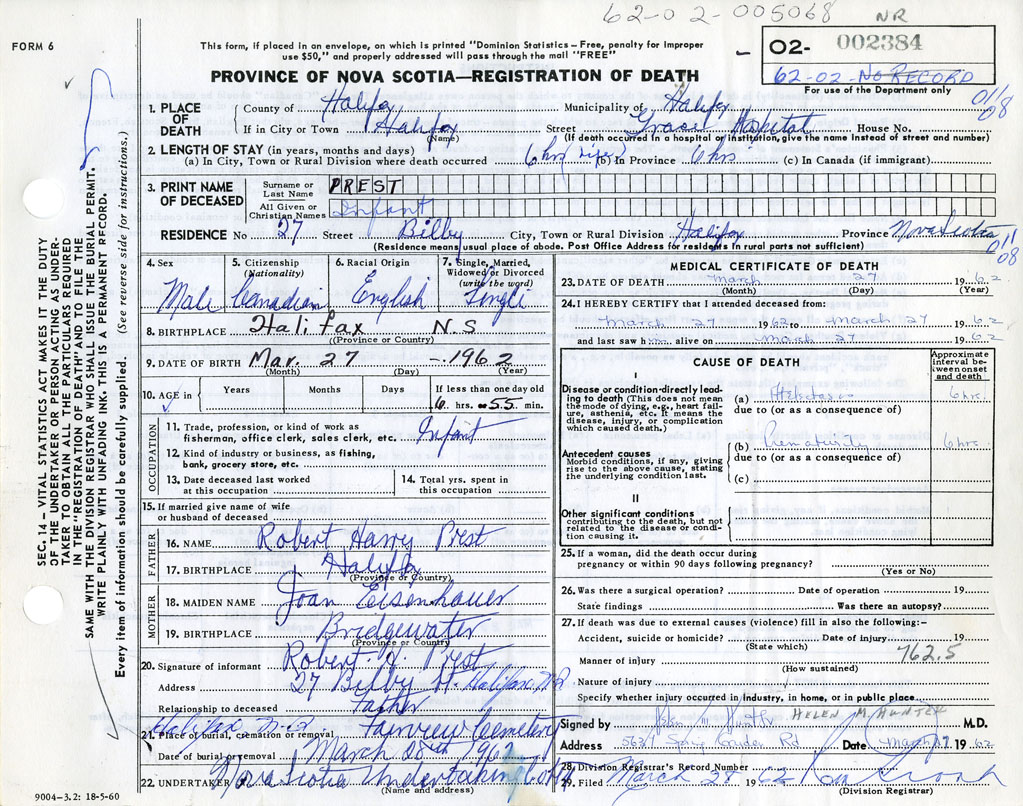 62-02-005068 NR
FORM 6
This form, if placed in an envelope, on which is printed "Dominion Statistics – Free, penalty for improper
use $50," and properly addressed will pass through the mail "FREE"
O2- 002384
62-02-No RECORD
For use of the Department only
PROVINCE OF NOVA SCOTIA—REGISTRATION OF DEATH
011
08
1. PLACE OF DEATH
County of Halifax Municipality of Halifax
If in City or Town Halifax Street Grace Hospital House No.
(If death occurred in a hospital or institution, give the name instead of street and number)
2. LENGTH OF STAY (in years, months and days)
(a) In City, Town or Rural Division where death occurred 6 hrs (life) In Province 6 hrs (c) In Canada (if immigrant)
3. PRINT NAME OF DECEASED
Surname or Last Name PREST
All Given or Christian Names Infant
RESIDENCE No 27 Street Bilby City, Town or Rural Division Halifax Province Nova Scotia
(Residence means usual place of abode. Post Office Address for residents in rural parts not sufficient)
011
08
4. Sex 5. Citizenship (Nationality) 6. Racial Origin 7. Single, Married, Widowed or Divorced (write the word)
Male Canadian English Single
8. BIRTHPLACE Halifax N.S
(Province or Country)
9. DATE OF BIRTH Mar. 27 1962
(Month) (Day) (Year)
10. AGE in Years Months Days If less than one day old
6 hrs. 55 min.
OCCUPATION
11. Trade, profession, or kind of work as
fisherman, office clerk, sales clerk, etc. Infant
12. Kind of industry or business, as fishing,
bank, grocery store, etc.
13. Date deceased last worked
at this occupation
14. Total yrs. spent in
this occupation
15. If married give name of wife
or husband of deceased
FATHER
16. NAME Robert Harry Prest
17. BIRTHPLACE Halifax
(Province or Country)
MOTHER
18. MAIDEN NAME Joan Eisenhauer
19. BIRTHPLACE Bridgewater
(Province or Country)
20. Signature of informant Robert H. Prest
Address 27 Bilby St. Halifax, N.S
Relationship to deceased Father
21. Place of burial, cremation or removal Fairview Cemetery
Halifax N.S
Date of burial or removal March 28th 1962
22. UNDERTAKER Nova Scotia Undertaking Co Ltd
(Name and address)
9004-3.2: 18-5-60
MEDICAL CERTIFICATE OF DEATH
23. DATE OF DEATH March 27 1962
(Month) (Day) (Year)
24. I HEREBY CERTIFY that I attended deceased from:
March 27 1962 to March 27 1962
and last saw h alive on March 27 1962
CAUSE OF DEATH
Approximate interval between onset and death
I
Disease or condition directly leading to death (This does not mean the mode of dying, e.g., heart failure, asthenia, etc. It means the disease, injury, or complication which caused death.)
(a) 6 hrs.
due to (or as a consequence of)
Antecedent causes
Morbid conditions, if any, giving rise to the above cause, stating the underlying condition last.
(b) Prematurity 6 hrs.
due to (or as a consequence of)
(c)
II
Other significant conditions
contributing to the death, but not related to the disease or condition causing it.
25. If a woman, did the death occur during
pregnancy or within 90 days following pregnancy?
(Yes or No)
26. Was there a surgical operation? Date of operation 19
State findings Was there an autopsy?
27. If death was due to external causes (violence) fill in also the following:-
Accident, suicide or homicide? Date of injury 19
(State which)
762.5
Manner of injury
(How sustained)
Nature of injury
Specify whether injury occurred in industry, in home, or in public place
Signed by Helen M Hunter HELEN M. HUNTER M.D.
Address 5637 Spring Garden Rd Date March 27 1962
28. Division Registrar's Record Number
29. Filed March 28 1962
(Division Registrar)
SEC. 14 – VITAL STATISTICS ACT MAKES IT THE DUTY
OF THE UNDERTAKER OR PERSON ACTING AS UNDER-
TAKER TO OBTAIN ALL THE PARTICULARS REQUIRED
IN THE "REGISTRATION OF DEATH" AND TO FILE THE
SAME WITH THE DIVISION REGISTRAR WHO SHALL ISSUE THE BURIAL PERMIT.
WRITE PLAINLY WITH UNFADING INK. THIS IS A PERMANENT RECORD.
Every item of information should be carefully supplied. (See reverse side for instructions.)